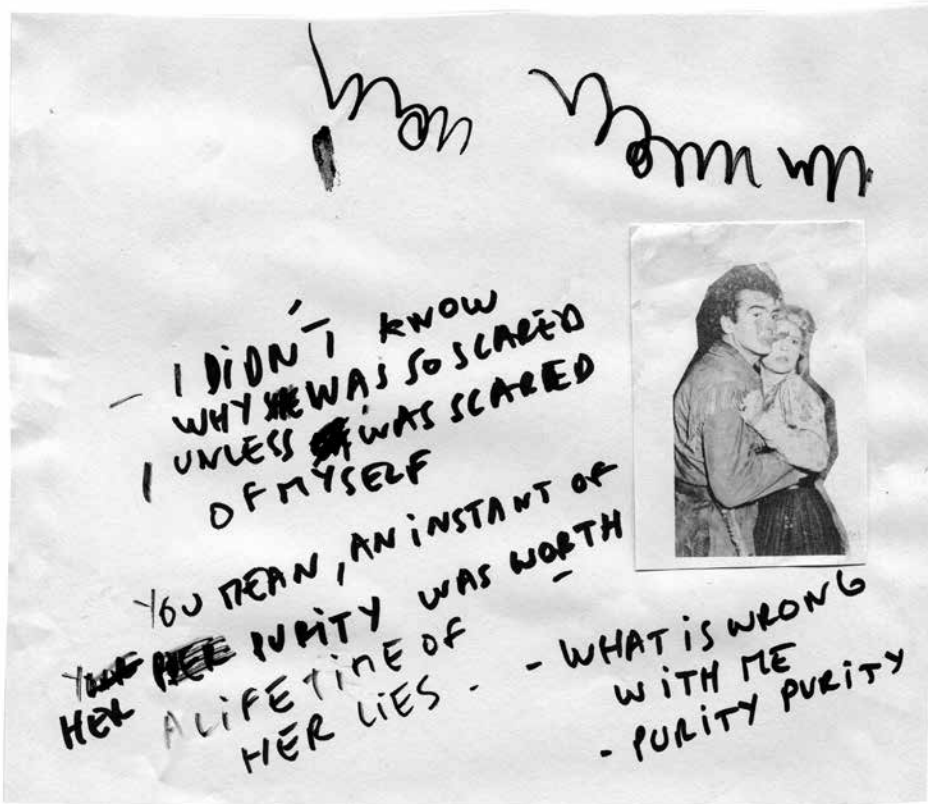 - I DiDN'T KNOW
WHY WAS SO SCARED
I UNLESS WAS SCARED
OF MYSELF
YOU MEAN, AN iNSTANT OF
HER PURiTY WAS WORTH
A LiFETiME OF
HER LiES.
- WHAT iS WRONG
WiTH ME
- PURiTY PURiTY